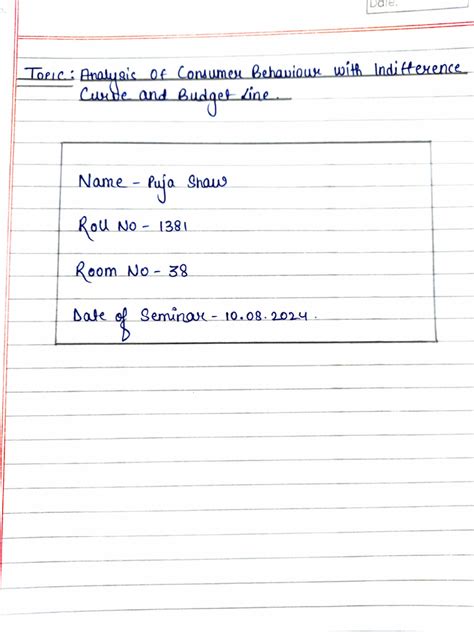 Date:
Topic : Analysis Of Consumer Behaviour with Indifference
Curve and Budget Line.
Name - Puja Shaw
Roll No - 1381
Room No - 38
Date of Seminar - 10.08.2024.